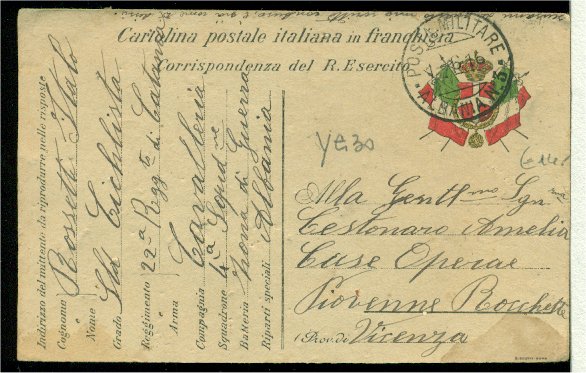 Cartolina postale italiana in franchigia
Corrispondenza del R. Esercito
POSTA MILITARE
ALBANIA N. 5
Indirizzo del mittente da riprodurre nelle risposte
Cognome Rossetti
Nome Italo
Grado Sld Ciclista
Reggimento 22ª Regg.to di Catania
Arma Cavalleria
Compagnia
Squadrone 4ª Squad.ne
Batteria Zona di Guerra
Riparti speciali Albania
Alla Gentl.mo Sgn.ra
Cestonaro Amelia
Case Operae
Piovenne Rocchette
(Prov. di Vicenza